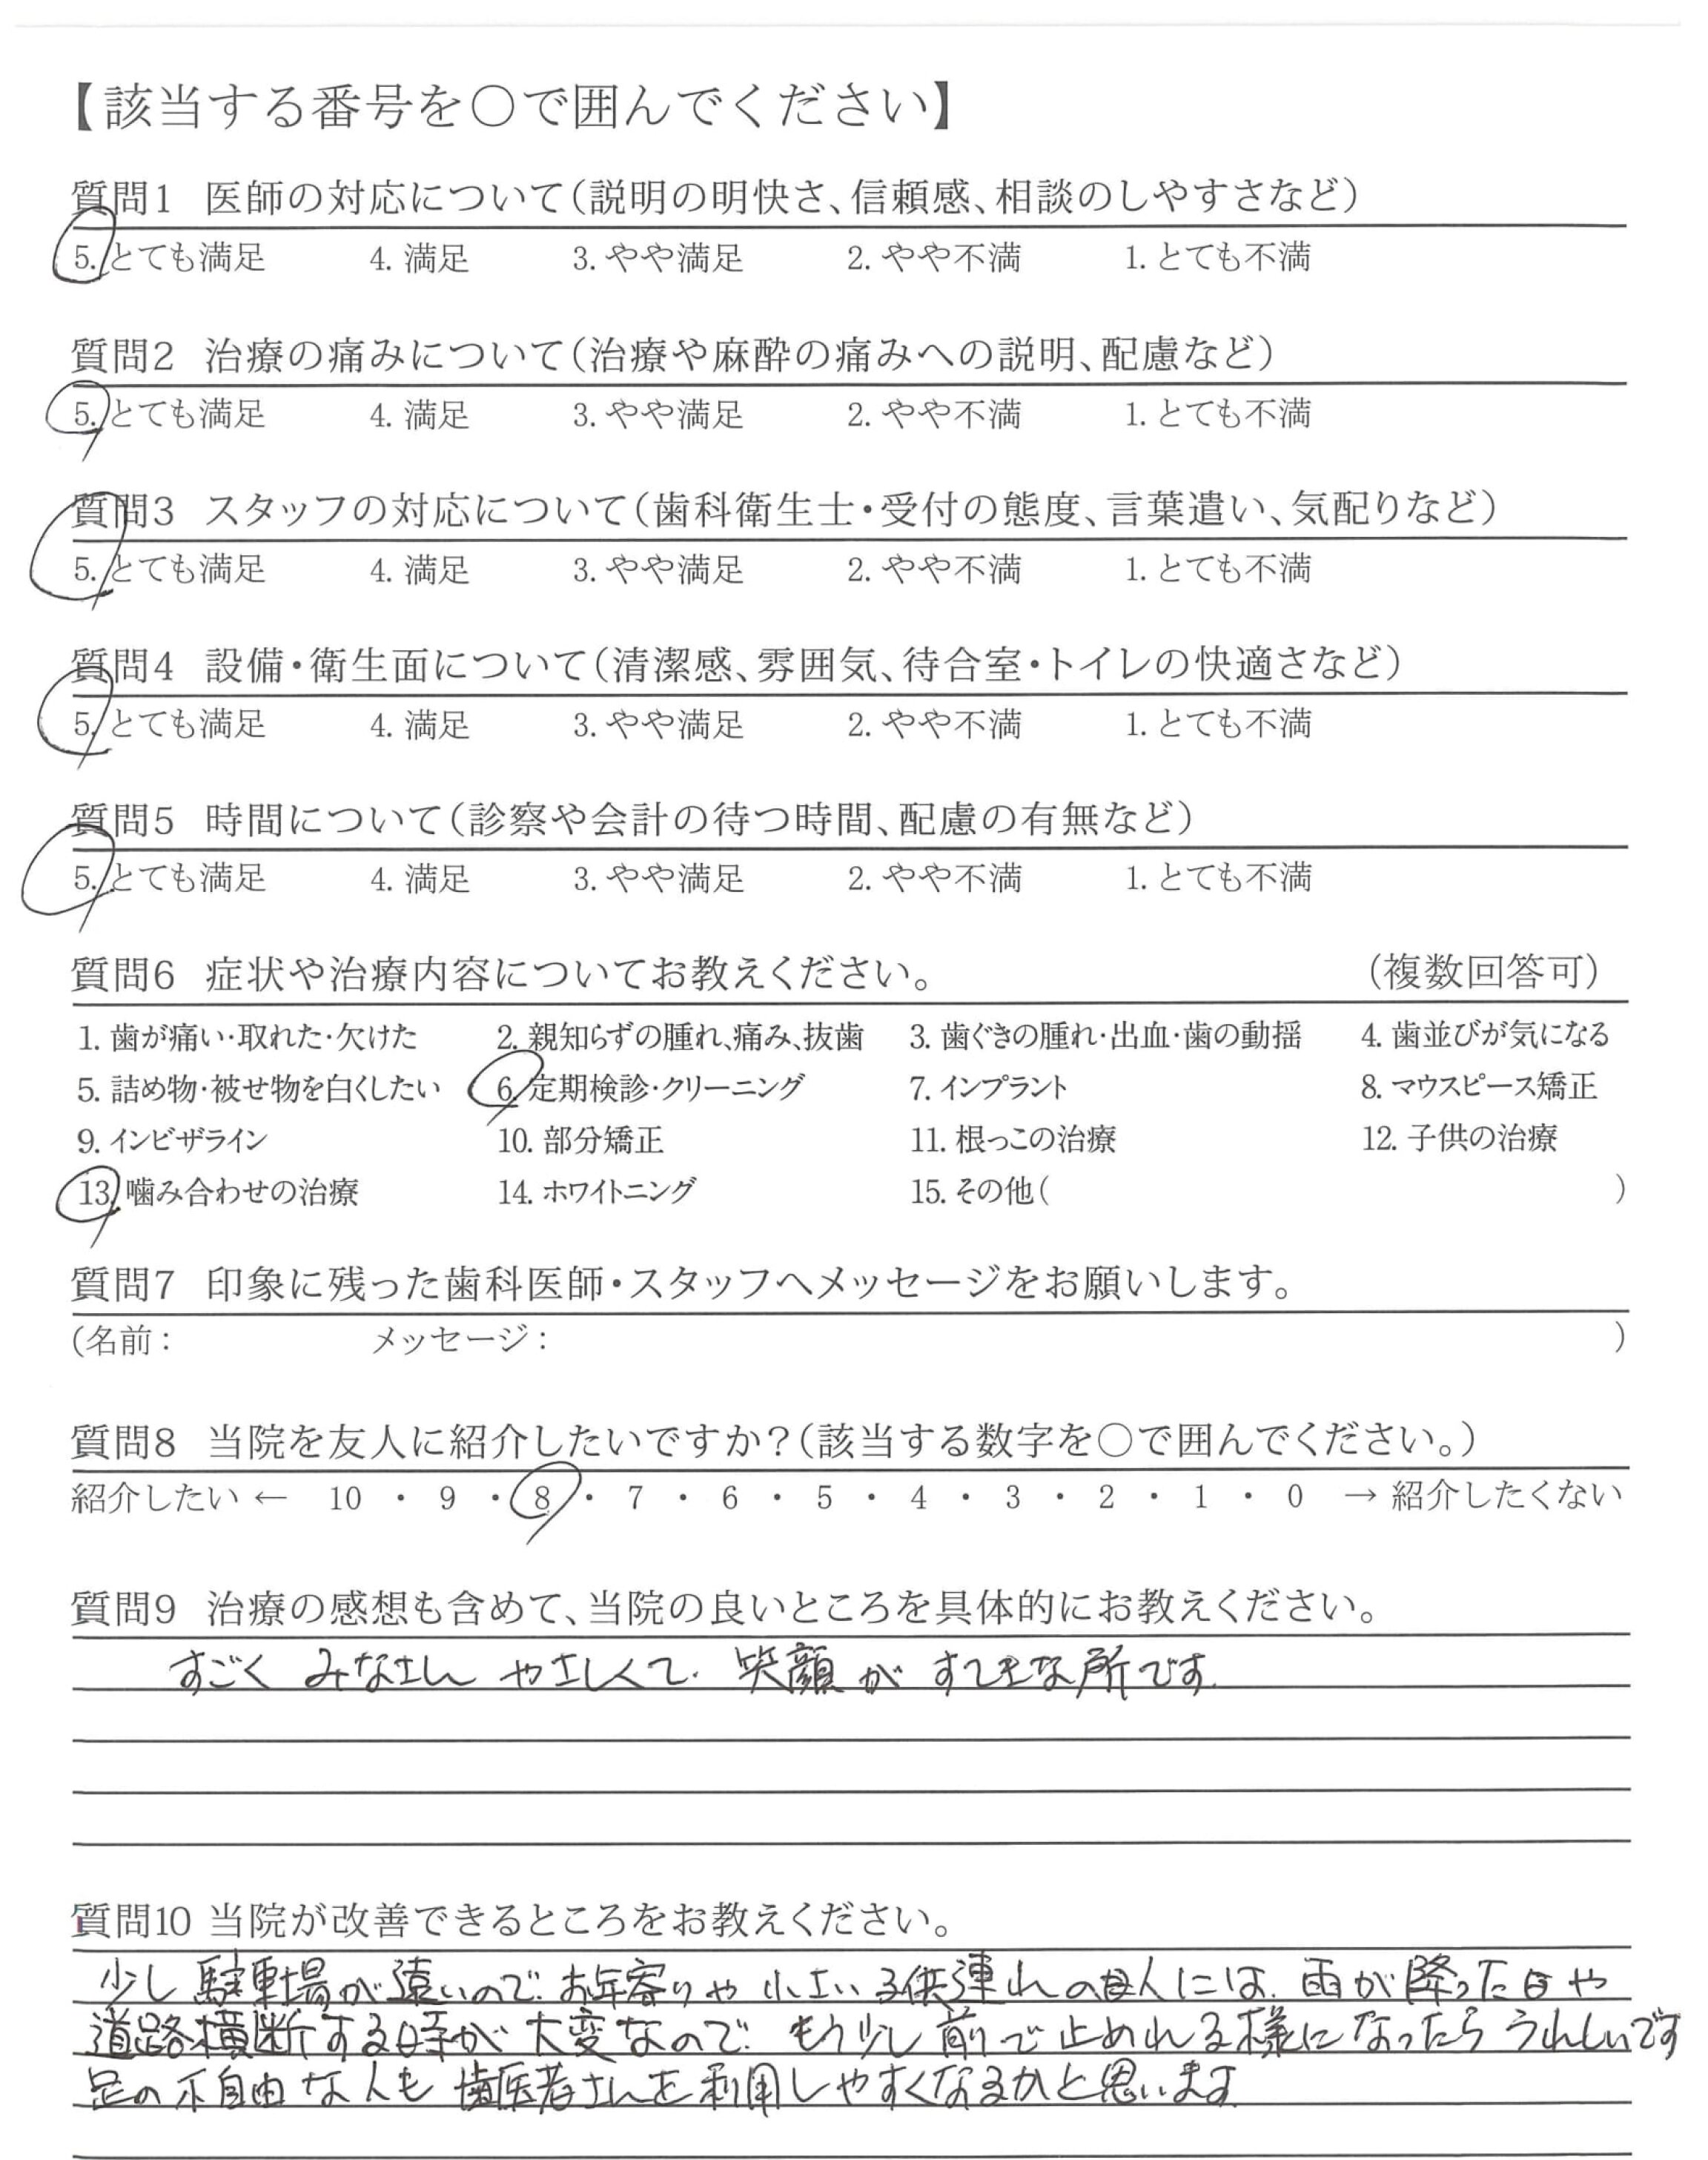 【該当する番号を○で囲んでください】
質問1 医師の対応について(説明の明快さ、信頼感、相談のしやすさなど)
5. とても満足 4. 満足 3. やや満足 2. やや不満 1. とても不満
質問2 治療の痛みについて(治療や麻酔の痛みへの説明、配慮など)
5. とても満足 4. 満足 3. やや満足 2. やや不満 1. とても不満
質問3 スタッフの対応について(歯科衛生士・受付の態度、言葉遣い、気配りなど)
5. とても満足 4. 満足 3. やや満足 2. やや不満 1. とても不満
質問4 設備・衛生面について(清潔感、雰囲気、待合室・トイレの快適さなど)
5. とても満足 4. 満足 3. やや満足 2. やや不満 1. とても不満
質問5 時間について(診察や会計の待つ時間、配慮の有無など)
5. とても満足 4. 満足 3. やや満足 2. やや不満 1. とても不満
質問6 症状や治療内容についてお教えください。 (複数回答可)
1. 歯が痛い・取れた・欠けた 2. 親知らずの腫れ、痛み、抜歯 3. 歯ぐきの腫れ・出血・歯の動揺 4. 歯並びが気になる
5. 詰め物・被せ物を白くしたい 6. 定期検診・クリーニング 7. インプラント 8. マウスピース矯正
9. インビザライン 10. 部分矯正 11. 根っこの治療 12. 子供の治療
13. 噛み合わせの治療 14. ホワイトニング 15. その他( )
質問7 印象に残った歯科医師・スタッフへメッセージをお願いします。
(名前: メッセージ: )
質問8 当院を友人に紹介したいですか?(該当する数字を○で囲んでください。)
紹介したい ← 10 ・ 9 ・ 8 ・ 7 ・ 6 ・ 5 ・ 4 ・ 3 ・ 2 ・ 1 ・ 0 → 紹介したくない
質問9 治療の感想も含めて、当院の良いところを具体的にお教えください。
すごく みなさん やさしくて、笑顔が すてきな所です。
質問10 当院が改善できるところをお教えください。
少し駐車場が遠いので、お年寄りや小さい子供連れの母人には、雨が降った日や
道路横断する時が大変なので、もう少し前で止めれる様になったらうれしいです
足の不自由な人も歯医者さんを利用しやすくなるかと思います。